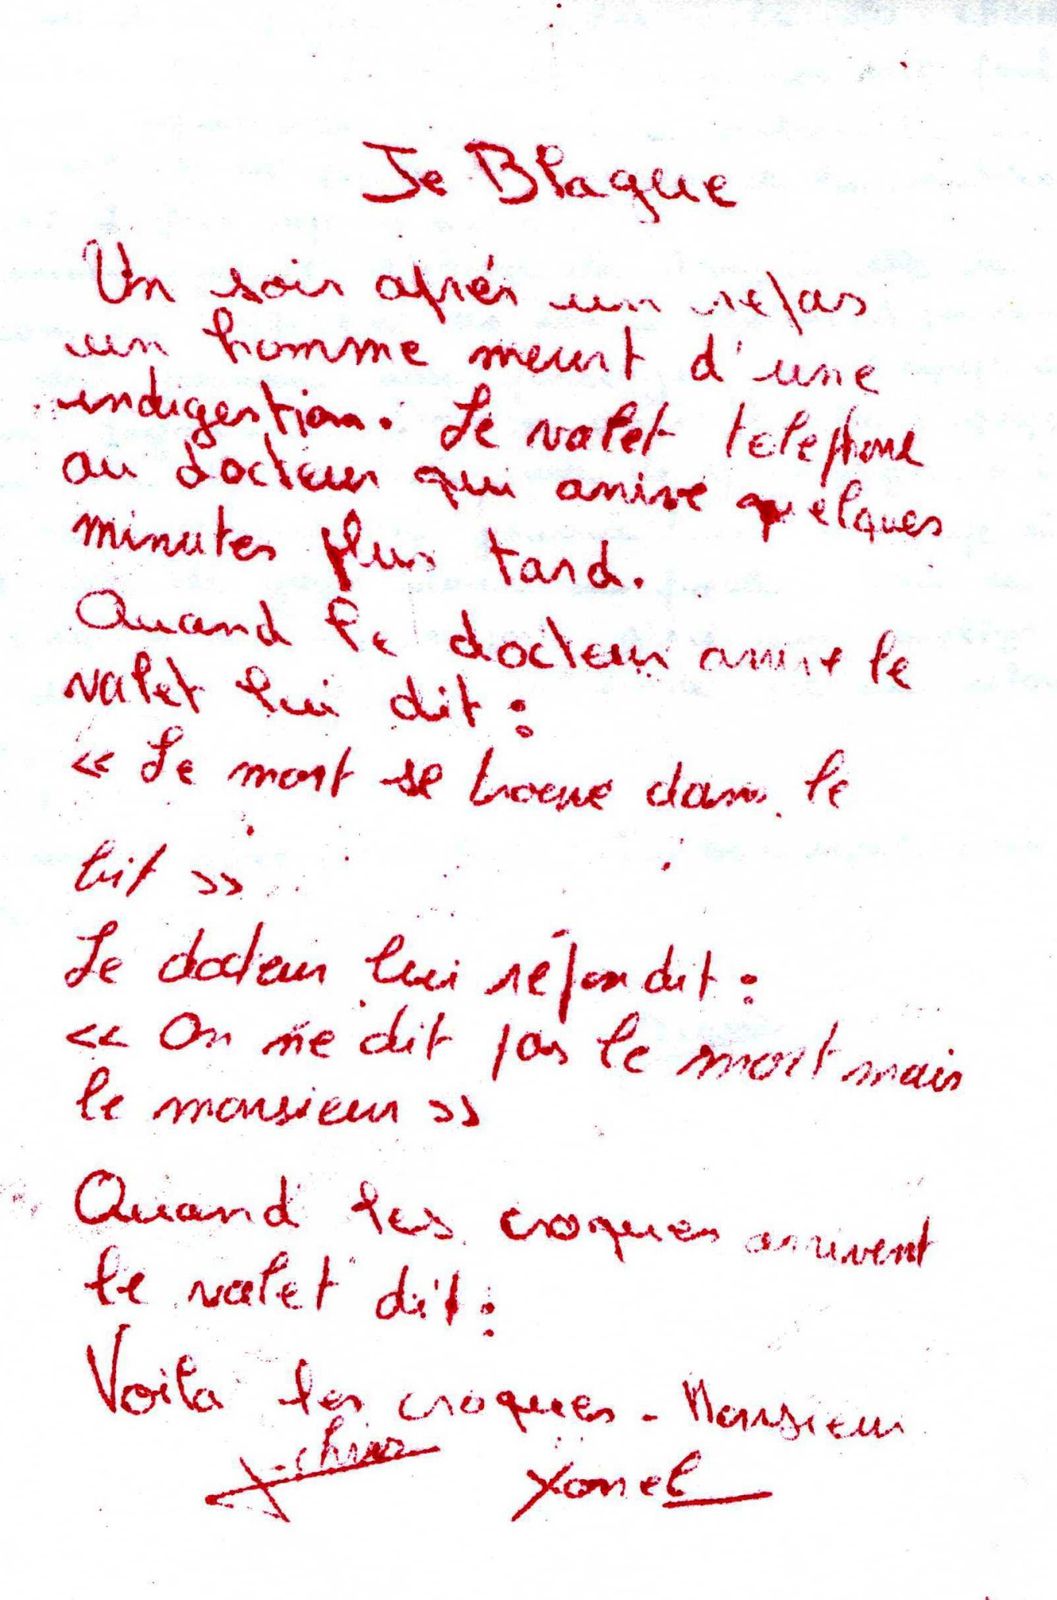 Je Blague
Un soir aprés un repas
un homme meurt d'une
indigestion. Le valet telephone
au docteur qui arrive quelques
minutes plus tard.
Quand le docteur arrive le
valet lui dit :
« Le mort se trouve dans le
lit »
Le docteur lui répondit :
« On ne dit pas le mort mais
le monsieur »
Quand les croques arrivent
le valet dit :
Voila les croques - Monsieur
Yonel